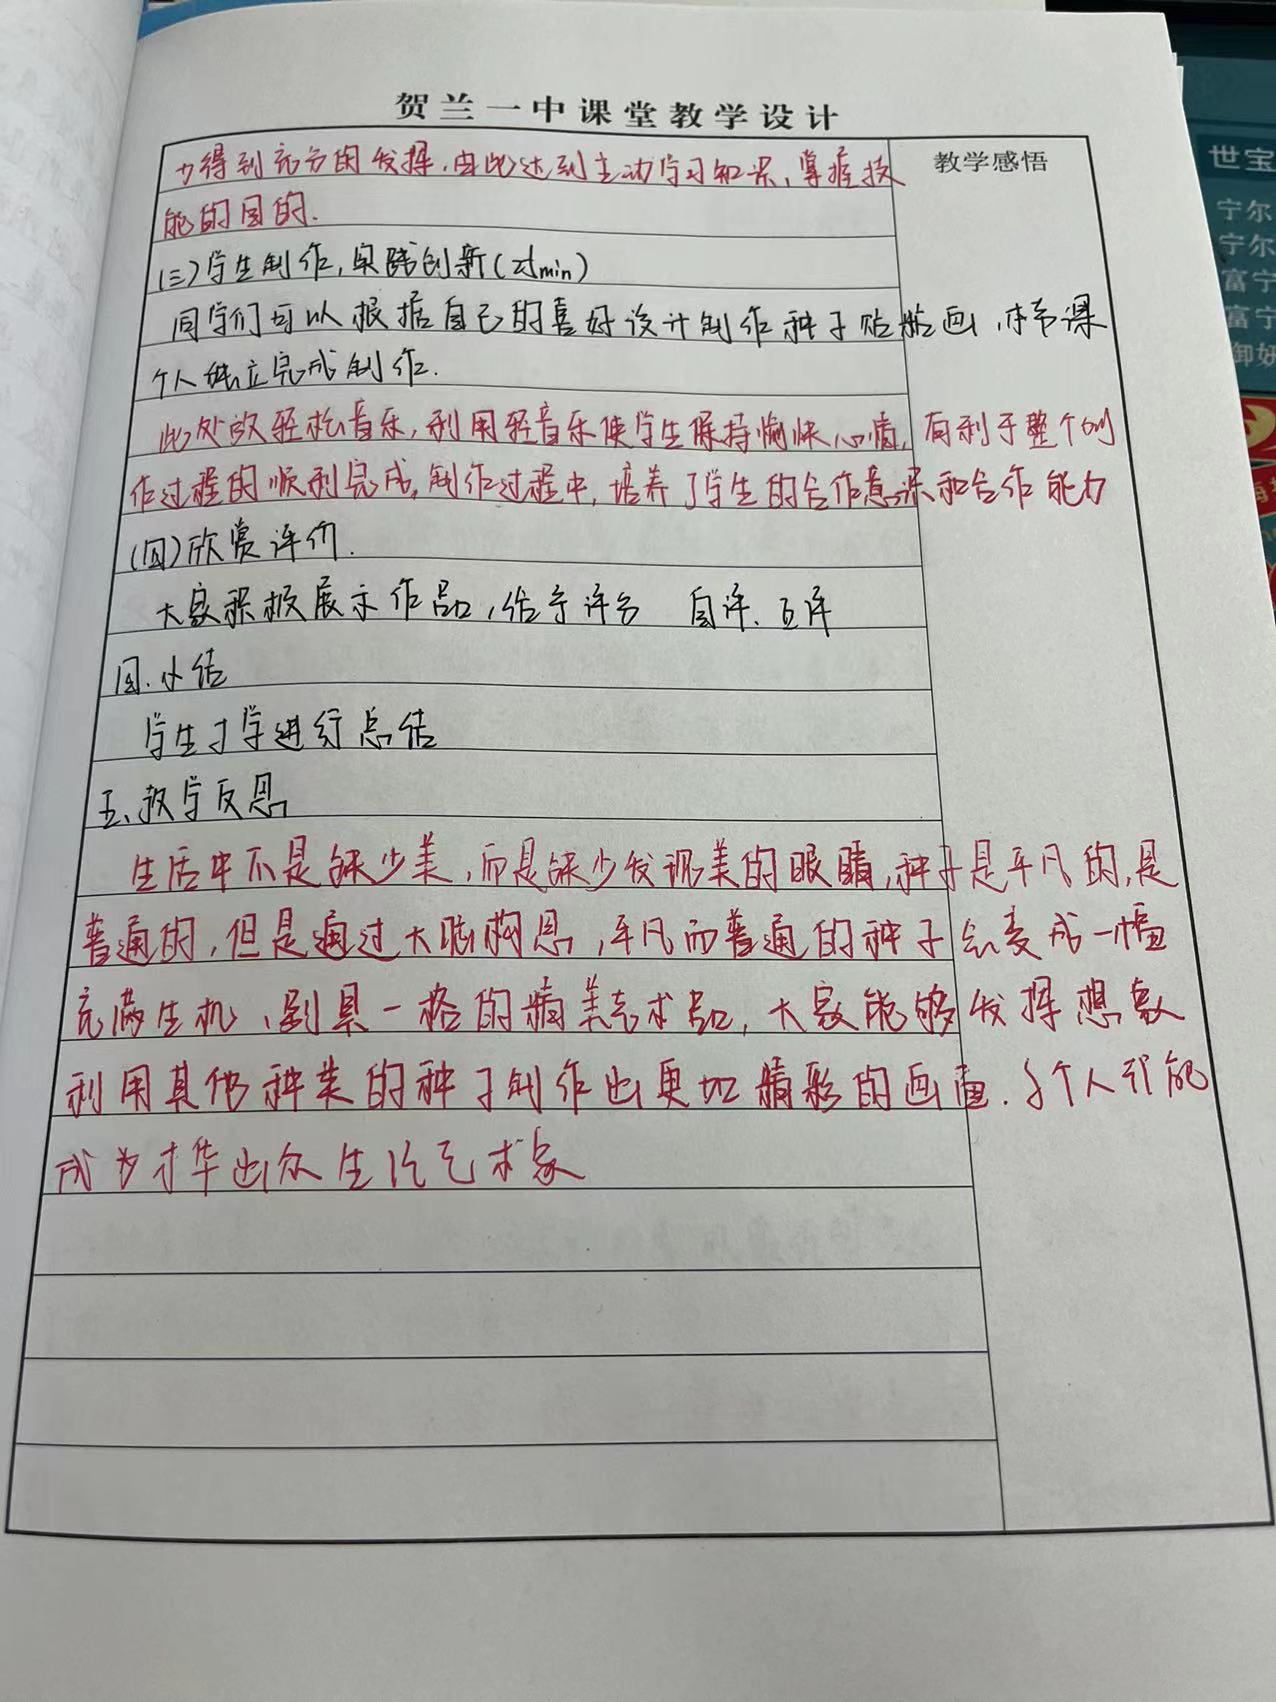 贺兰一中课堂教学设计
教学感悟
力得到充分的发挥,由此达到主动学习知识,掌握技
能的目的.
(三)学生制作,实践创新(min)
同学们可以根据自己的喜好设计制作种子贴画,本节课
个人独立完成制作.
此处放轻松音乐,利用轻音乐使学生保持愉快心情,有利于整个制
作过程的顺利完成,制作过程中,培养了学生的合作意识和合作能力
(四)欣赏评价.
大家积极展示作品,给予评分 自评.互评
四.小结
学生才学进行总结
五、教学反思
生活中不是缺少美,而是缺少发现美的眼睛,种子是平凡的,是
普通的,但是通过大脑构思,平凡而普通的种子会变成一幅
充满生机、别具一格的精美艺术品,大家能够发挥想象
利用其他种类的种子制作出更加精彩的画面.个人能
成为才华出众生活艺术家
世宝
宁尔
宁尔
富宁
富宁
御妍